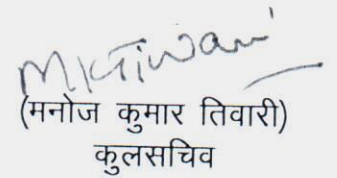 MKTiwari
(मनोज कुमार तिवारी)
कुलसचिव